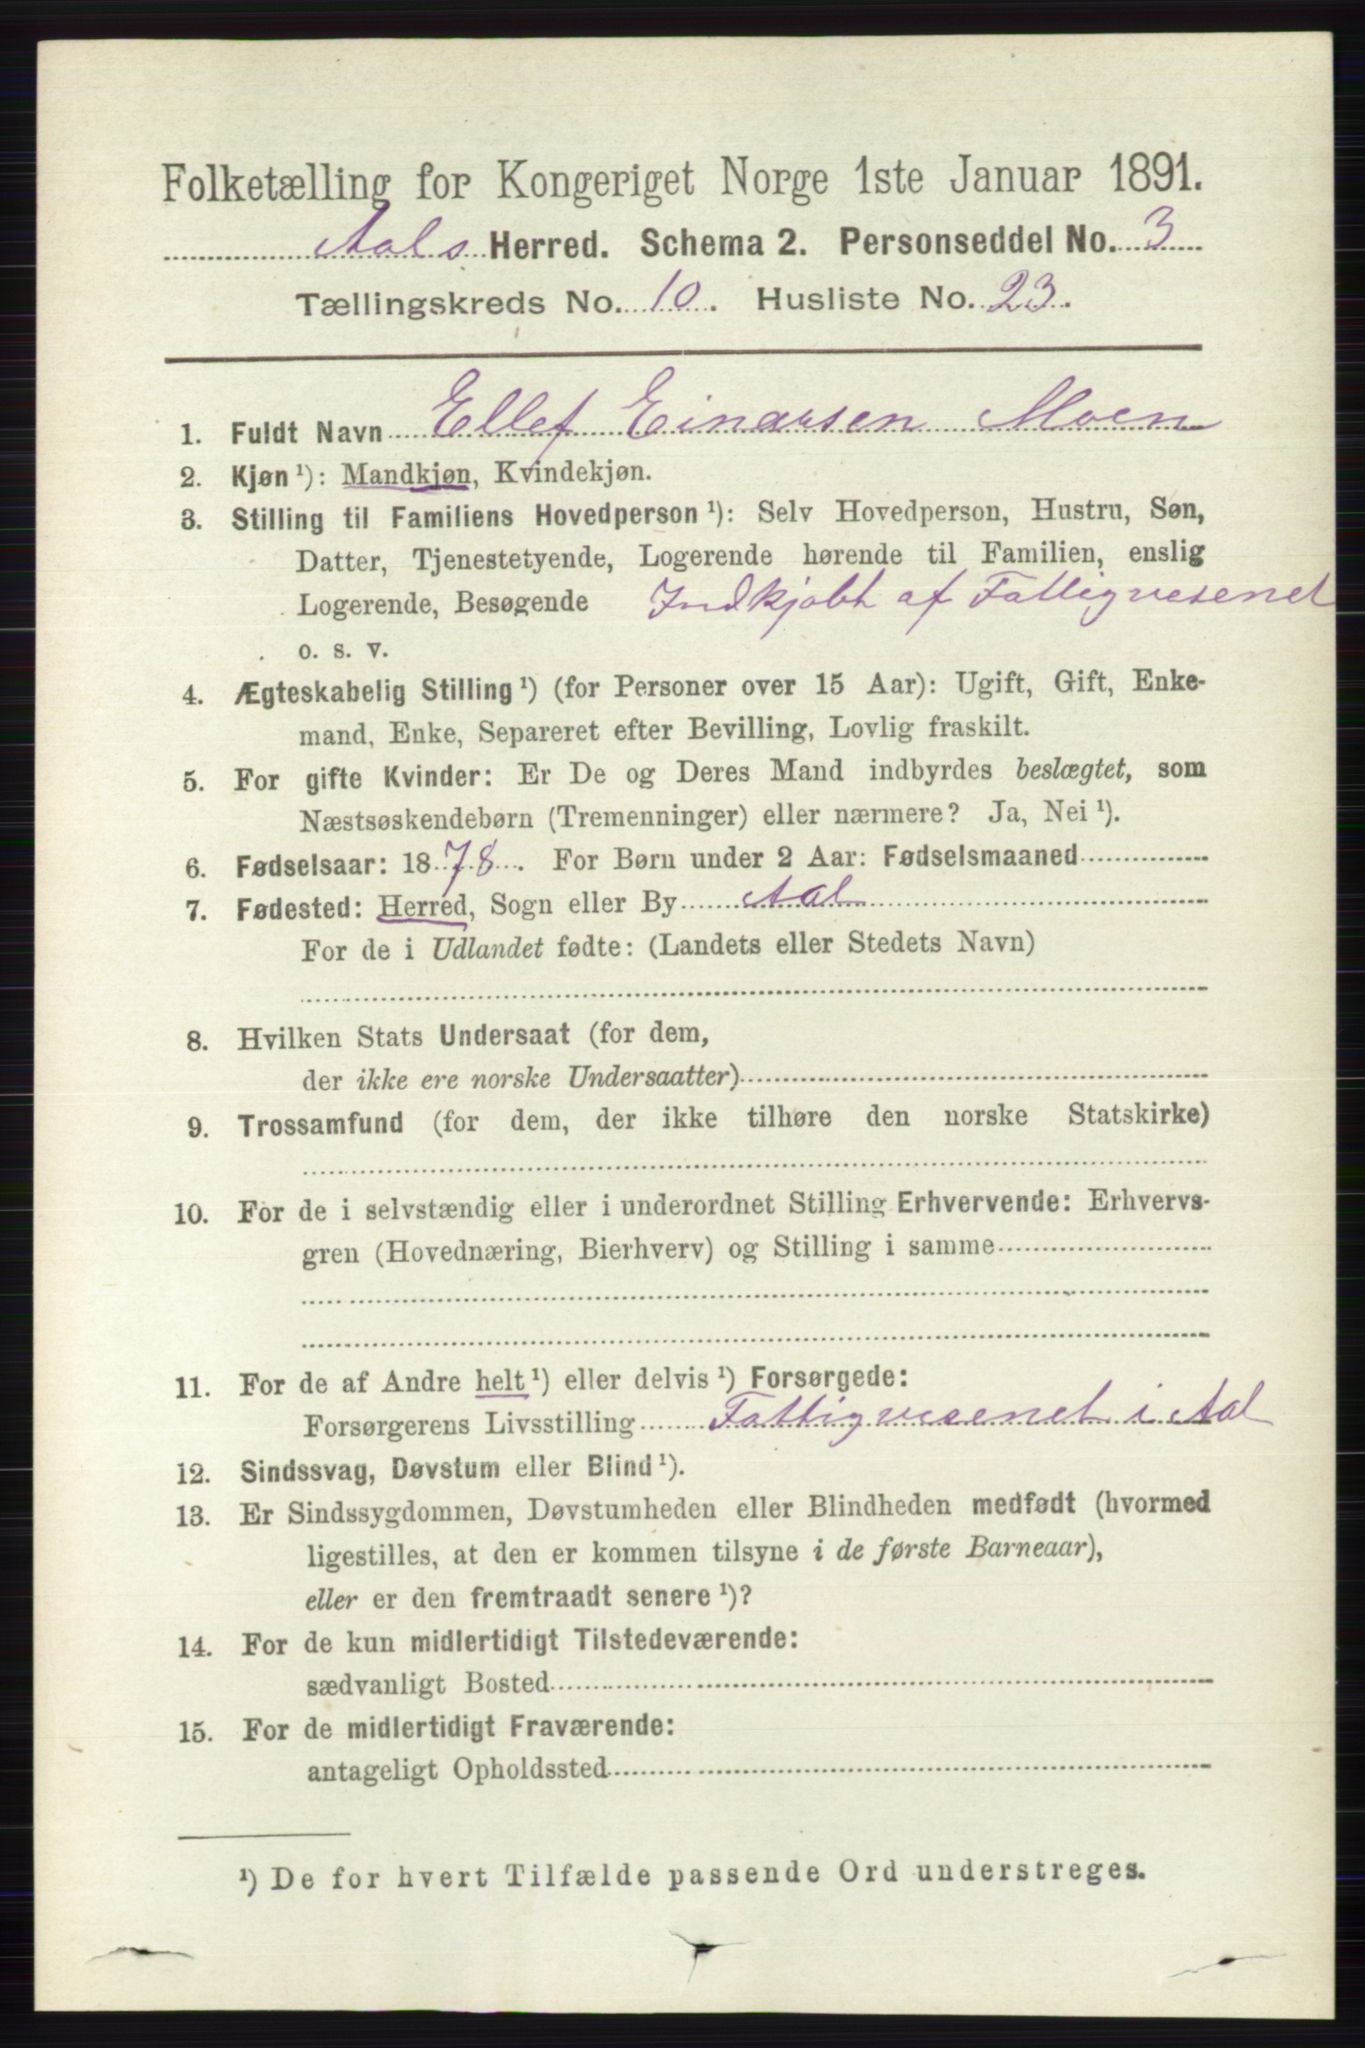 Folketælling for Kongeriget Norge 1ste Januar 1891.
Aals Herred. Schema 2. Personseddel No. 3
Tællingskreds No. 10. Husliste No. 23.
1. Fuldt Navn Ellef Einarsen Moen
2. Kjøn ¹): Mandkjøn, Kvindekjøn.
3. Stilling til Familiens Hovedperson ¹): Selv Hovedperson, Hustru, Søn,
Datter, Tjenestetyende, Logerende hørende til Familien, enslig
Logerende, Besøgende Indkjøbt af Fattigvesenet
o. s. v.
4. Ægteskabelig Stilling ¹) (for Personer over 15 Aar): Ugift, Gift, Enke-
mand, Enke, Separeret efter Bevilling, Lovlig fraskilt.
5. For gifte Kvinder: Er De og Deres Mand indbyrdes beslægtet, som
Næstsøskendebørn (Tremenninger) eller nærmere? Ja, Nei ¹).
6. Fødselsaar: 1878. For Børn under 2 Aar: Fødselsmaaned
7. Fødested: Herred, Sogn eller By Aal
For de i Udlandet fødte: (Landets eller Stedets Navn)
8. Hvilken Stats Undersaat (for dem,
der ikke ere norske Undersaatter)
9. Trossamfund (for dem, der ikke tilhøre den norske Statskirke)
10. For de i selvstændig eller i underordnet Stilling Erhvervende: Erhvervs-
gren (Hovednæring, Bierhverv) og Stilling i samme
11. For de af Andre helt ¹) eller delvis ¹) Forsørgede:
Forsørgerens Livsstilling Fattigvesenet i Aal
12. Sindssvag, Døvstum eller Blind ¹).
13. Er Sindssygdommen, Døvstumheden eller Blindheden medfødt (hvormed
ligestilles, at den er kommen tilsyne i de første Barneaar),
eller er den fremtraadt senere ¹)?
14. For de kun midlertidigt Tilstedeværende:
sædvanligt Bosted
15. For de midlertidigt Fraværende:
antageligt Opholdssted
¹) De for hvert Tilfælde passende Ord understreges.